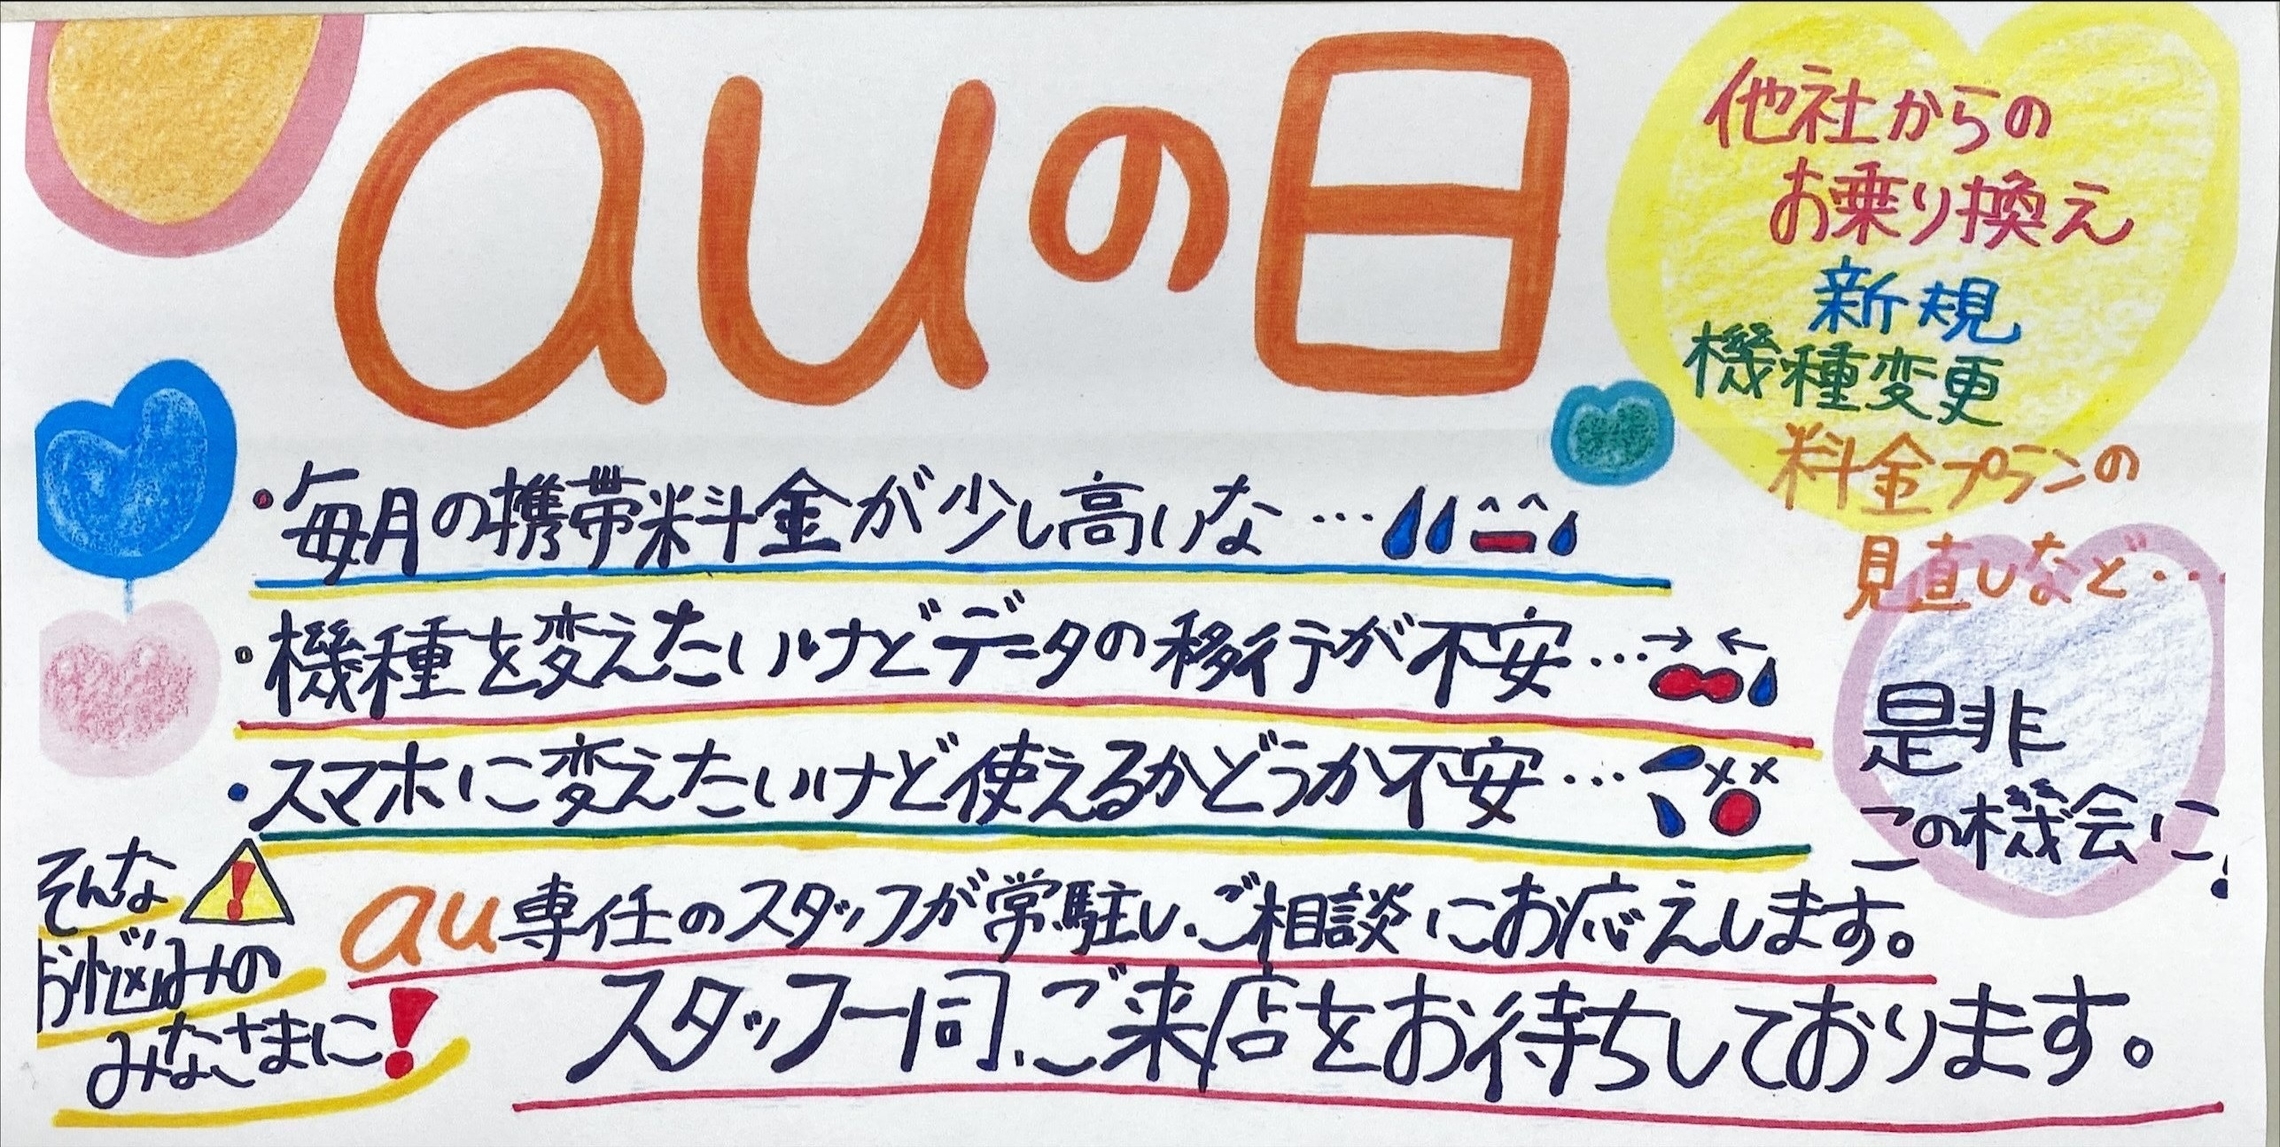 auの日
他社からの
お乗り換え
新規
機種変更
料金プランの
見直しなど…
・毎月の携帯料金が少し高いな…
・機種を変えたいけどデータの移行が不安…
・スマホに変えたいけど使えるかどうか不安…
是非
この機会に!
そんな
お悩みの
みなさまに!
au専任のスタッフが常駐し、ご相談にお応えします。
スタッフ一同、ご来店をお待ちしております。